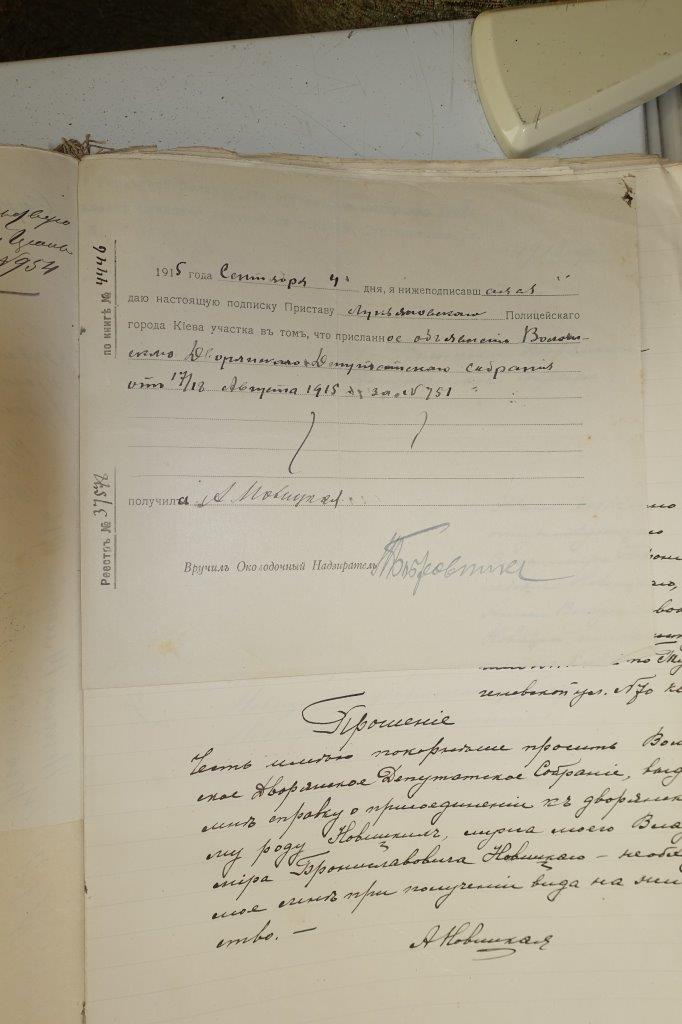 № 954
по книгѣ № 4446
Реестръ № 37578
1915 года Сентября 4 дня, я нижеподписавшаяся
даю настоящую подписку Приставу Лукьяновскаго Полицейскаго
города Кіева участка въ томъ, что присланное объявленіе Волын-
скаго Дворянскаго Депутатскаго собранія
отъ 17/18 Августа 1915 г. за № 751
получила А Новицкая
Вручилъ Околодочный Надзиратель
по
ул. № 70
Прошеніе
Честь имѣю покорнѣйше просить Вол
ское Дворянское Депутатское Собраніе, выд
мнѣ справку о присоединеніи къ дворянск
му роду Новицкихъ, мужа моего Влад
міра Брониславовича Новицкаго – необх
мое мнѣ при полученіи вида на жи
ство. –
А Новицкая